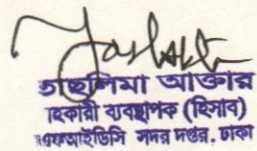 তাছলিমা আক্তার
সহকারী ব্যবস্থাপক (হিসাব)
এফআইডিসি সদর দপ্তর, ঢাকা